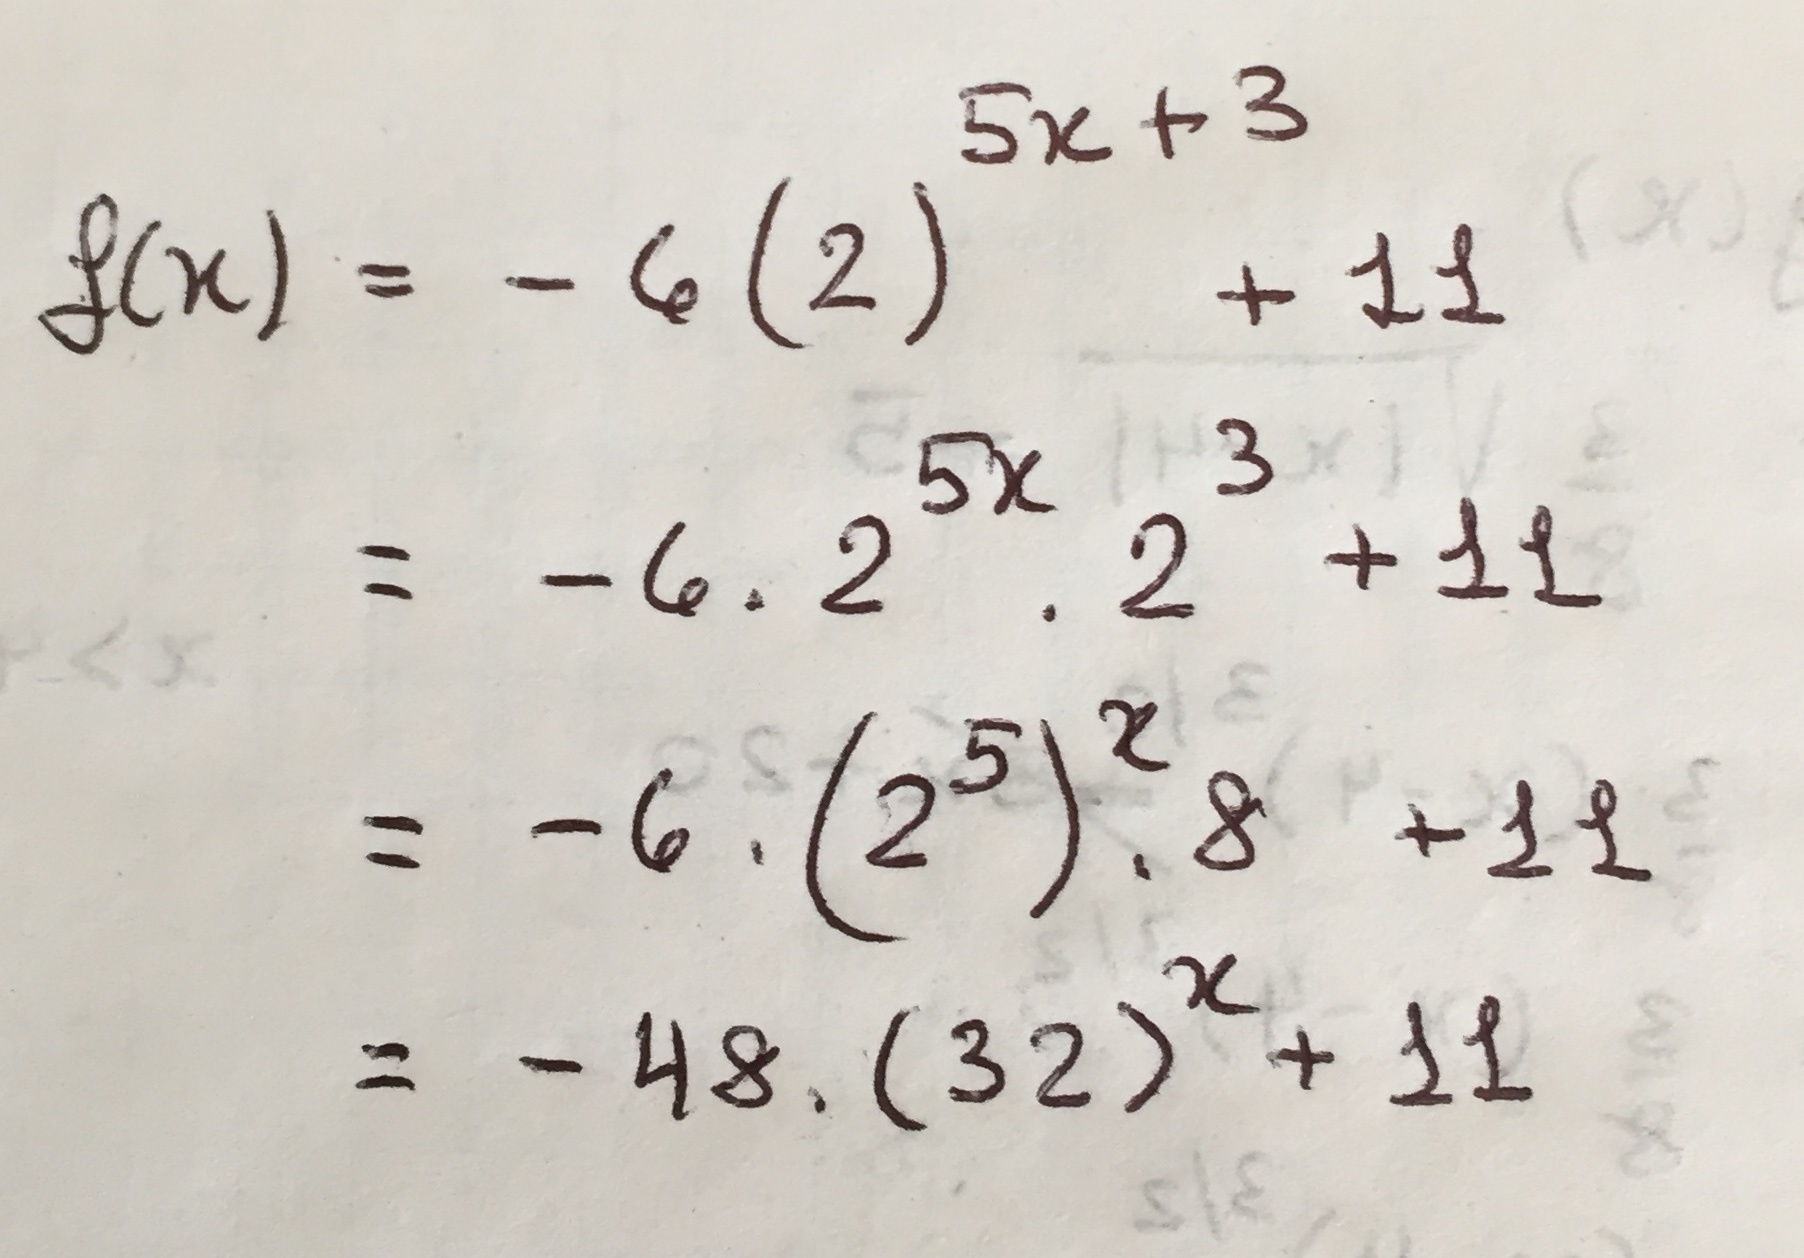 f(x) = - 6 (2)^{5x + 3} + 11
= - 6 . 2^{5x} . 2^3 + 11
= - 6 . (2^5)^x . 8 + 11
= - 48 . (32)^x + 11